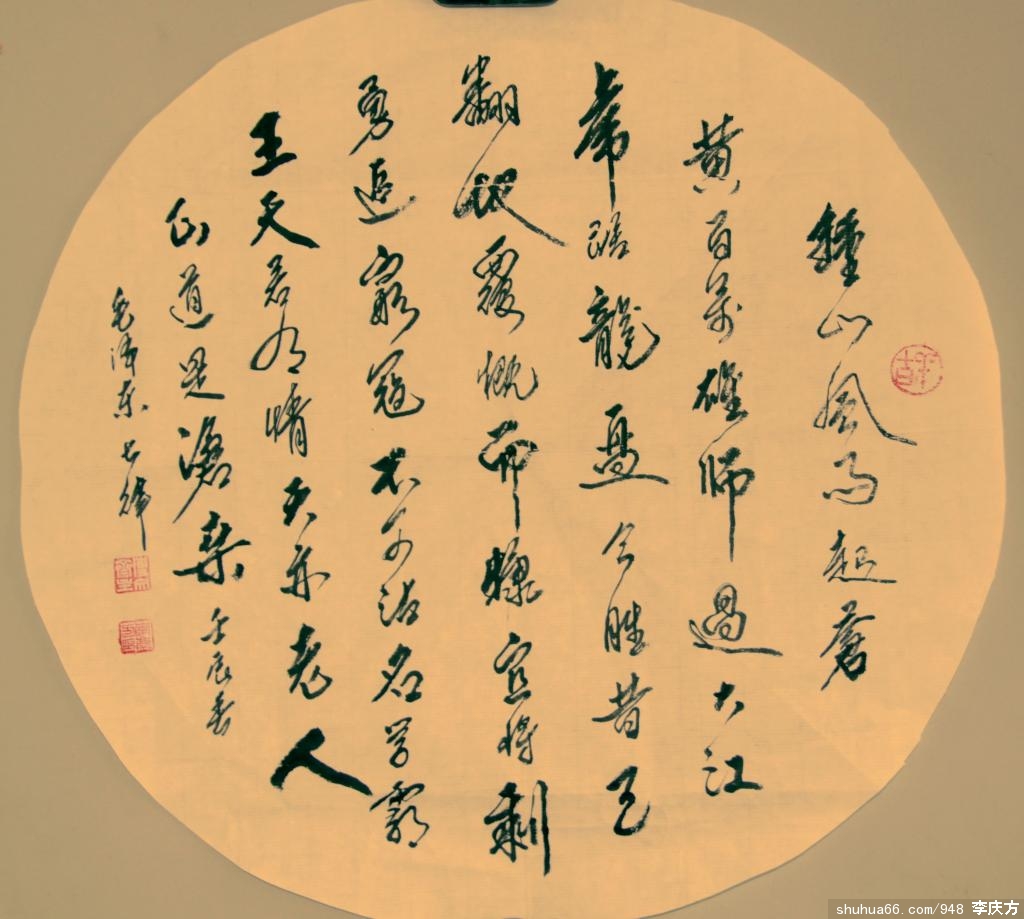 鍾山風雨起蒼
黄百萬雄師過大江
虎踞龍盘今勝昔天
翻地覆慨而慷宜将剩
勇追窮寇不可沽名学霸
王天若有情天亦老人
间道是滄桑 壬辰春
毛澤东七律
shuhua66.com/948 李庆方